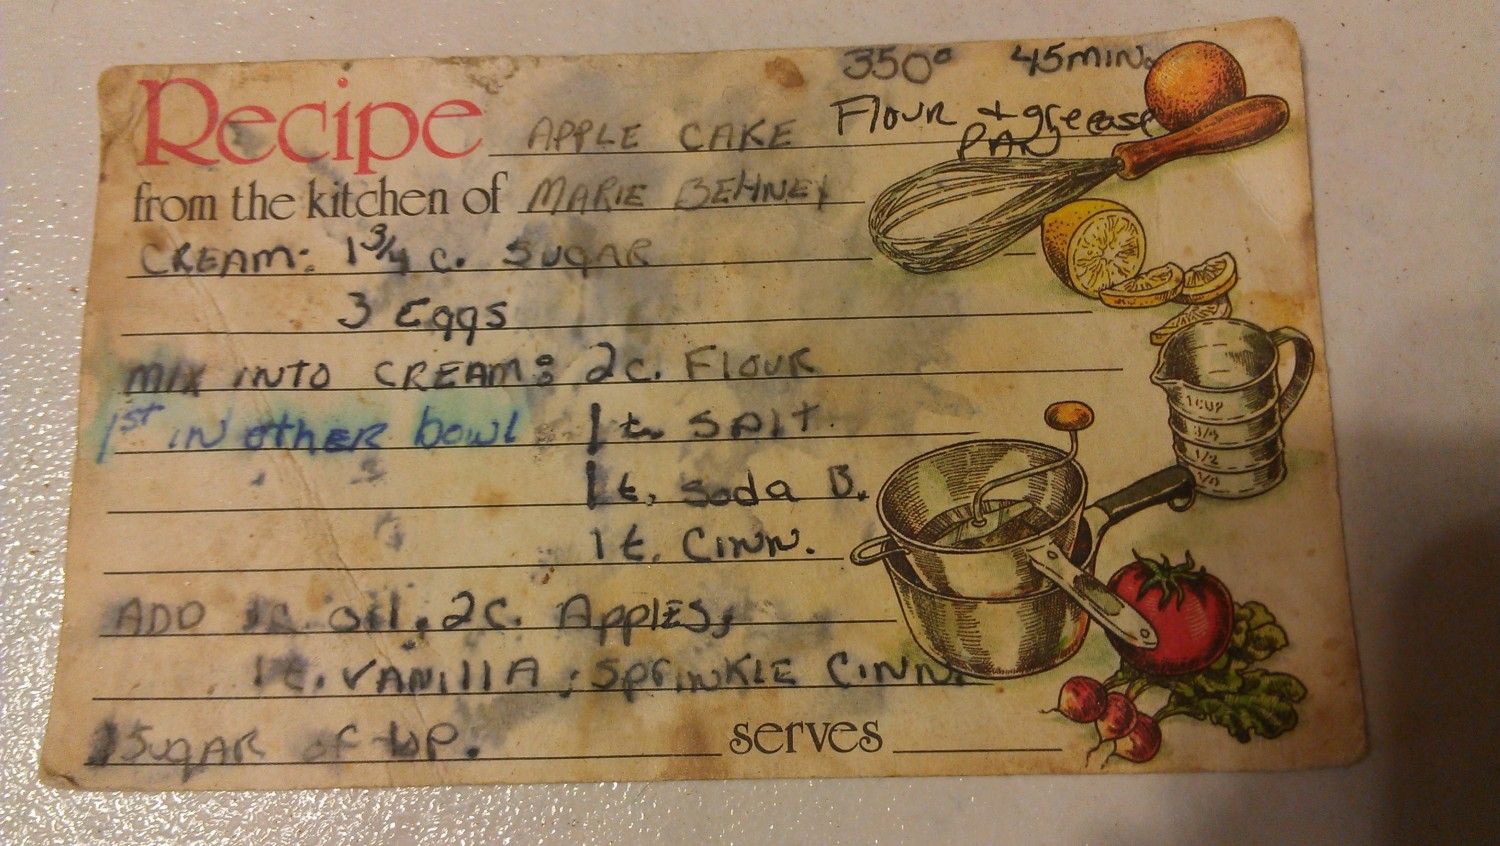 350° 45 MIN.
Recipe APPLE CAKE Flour + grease
PAN
from the kitchen of MARIE BEHNEY
CREAM: 1 3/4 c. SUGAR
3 Eggs
MIX INTO CREAM: 2c. FLOUR
1st IN other bowl 1 t. SALT.
1 t. soda B.
1 t. CINN.
ADD 1c. oil, 2c. Apples,
1 t. VANILLA, SPRINKLE CINN.
SUGAR of top.
serves
1 CUP
3/4
1/2
1/4